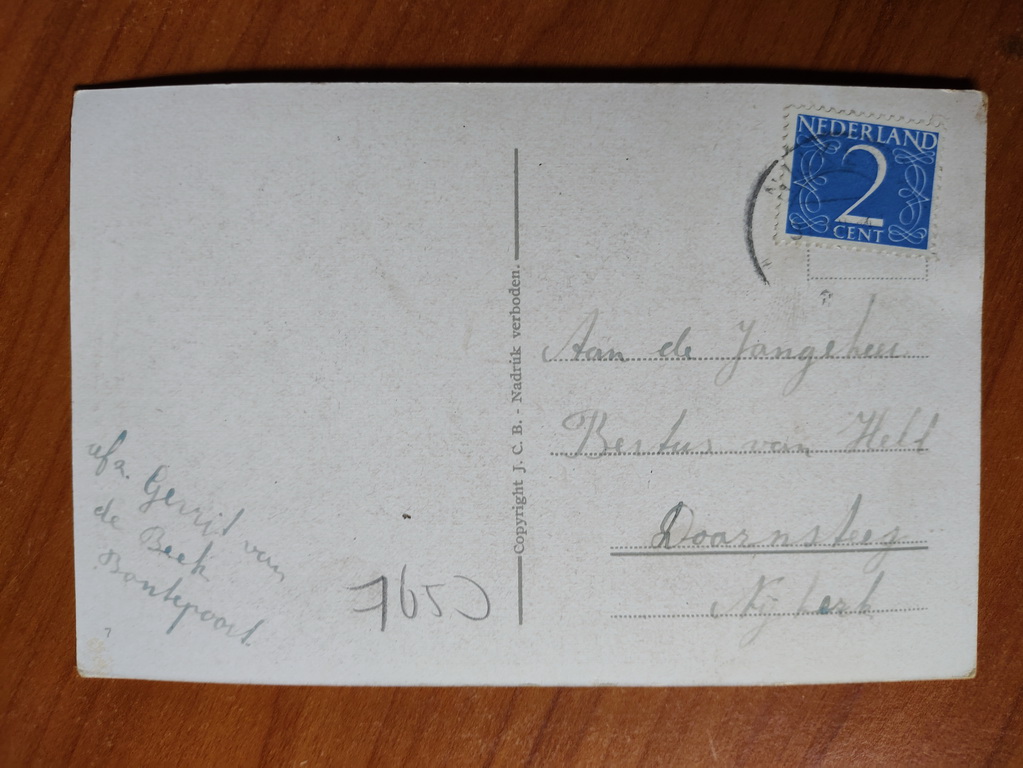 NEDERLAND
2
CENT
Aan de Jongeheer
Bertus van Helt
Doornsteeg
Nijkerk
Copyright J. C. B. - Nadruk verboden.
afz. Gerrit van
de Beek
Bontepoort